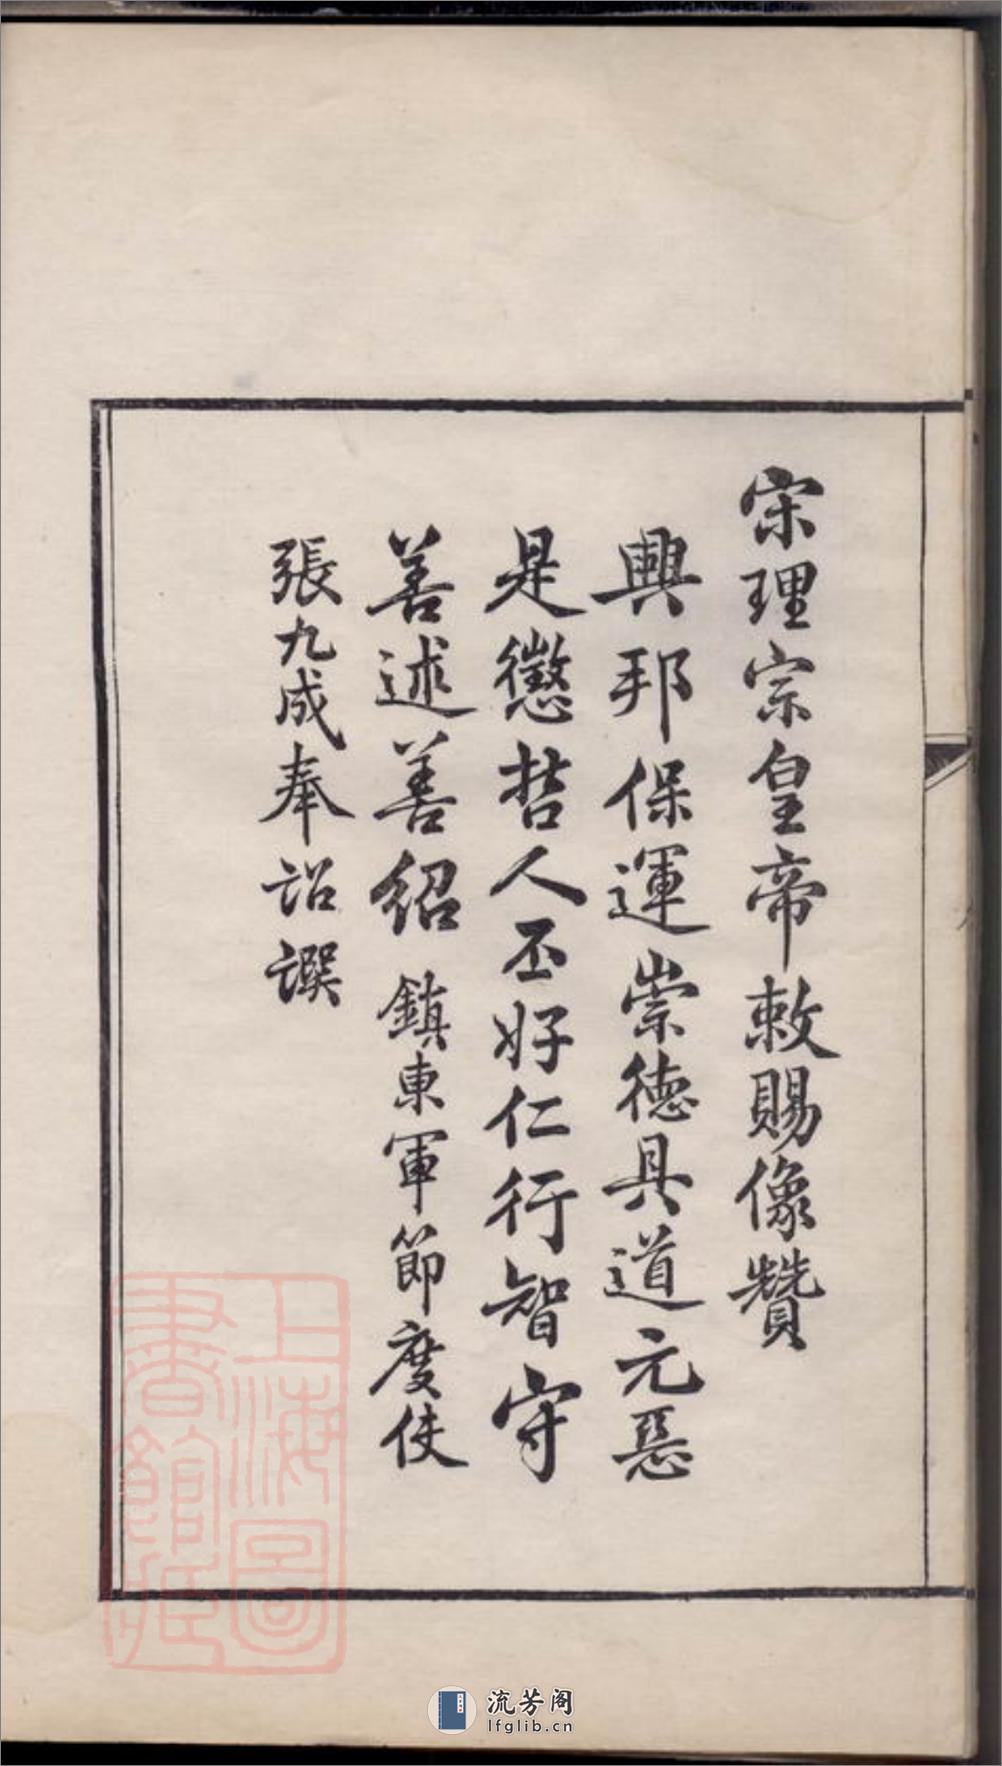 宋理宗皇帝敕賜像贊
興邦保運崇德具道元惡
是懲哲人丕好仁行智守
善述善紹鎮東軍節度使
張九成奉詔譔
上海圖
書館藏
流芳阁
lfglib.cn